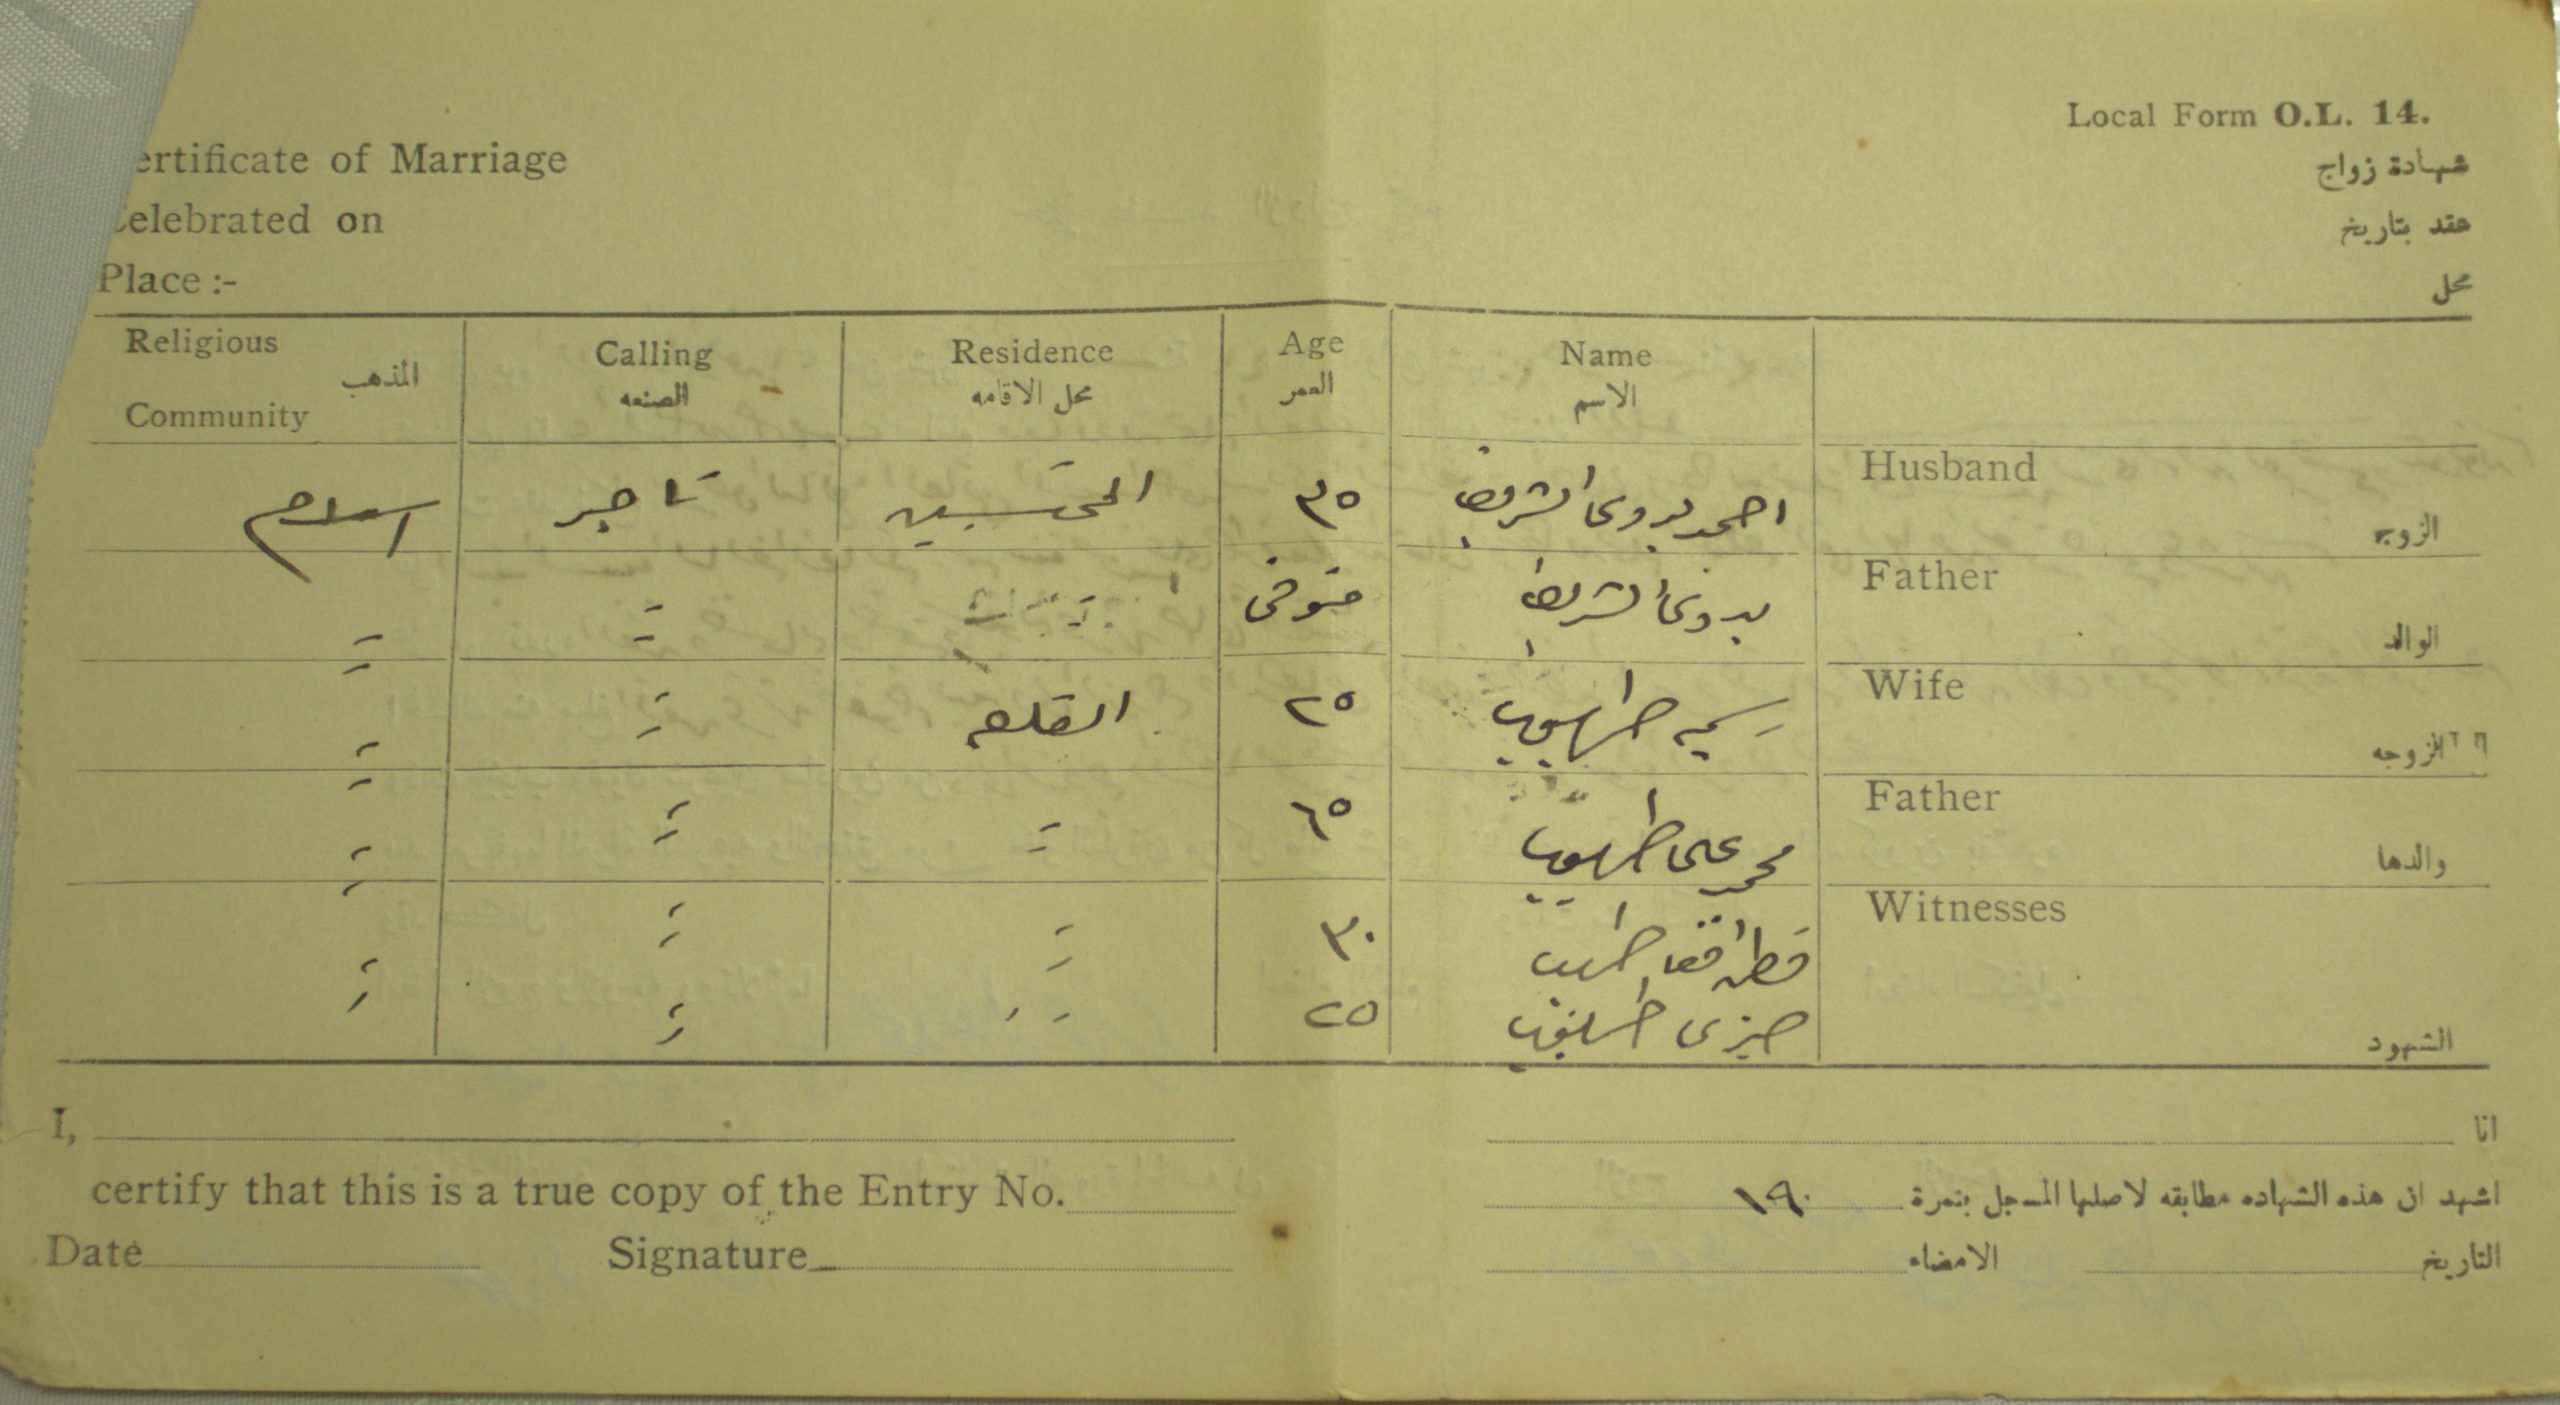 Local Form O.L. 14.
ertificate of Marriage شهادة زواج
Celebrated on عقد بتاريخ
Place :- محل
Religious Community المذهب Calling الصنعه Residence محل الاقامه Age العمر Name الاسم
Husband الزوج احمد بدوي الشريف ٣٥ المحتسبين تاجر اسلام
Father الوالد بدوي الشريف متوفى
Wife الزوجه طهبوب ٢٥ القلعه
Father والدها محمد علي طهبوب ٦٥
Witnesses ٣٠
الشهود ٢٥
I, انا
certify that this is a true copy of the Entry No. اشهد ان هذه الشهاده مطابقه لاصلها المسجل بنمرة ١٩٠
Date Signature الامضاء التاريخ